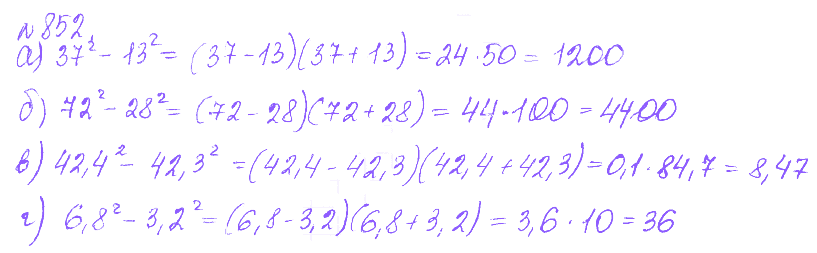 №852.
а) 37² - 13² = (37-13)(37+13) = 24·50 = 1200
б) 72² - 28² = (72-28)(72+28) = 44·100 = 4400
в) 42,4² - 42,3² = (42,4-42,3)(42,4+42,3) = 0,1·84,7 = 8,47
г) 6,8² - 3,2² = (6,8-3,2)(6,8+3,2) = 3,6·10 = 36